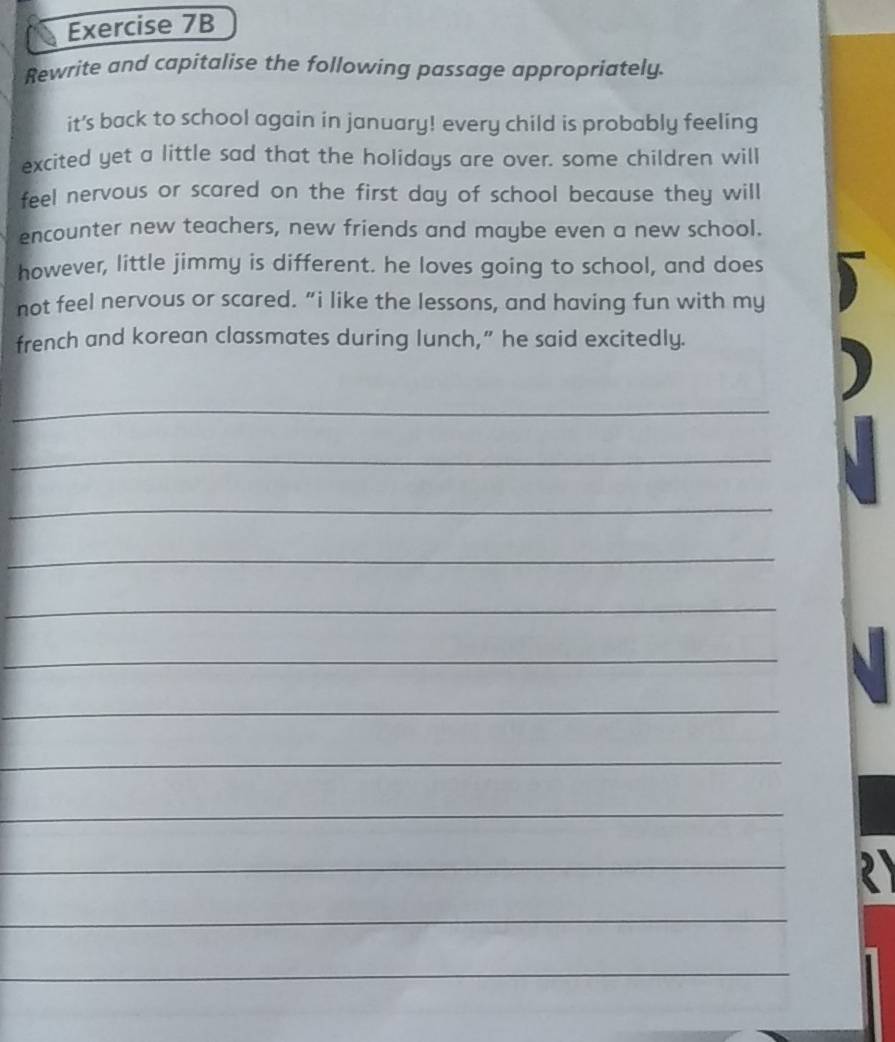 Exercise 7B
Rewrite and capitalise the following passage appropriately.
it's back to school again in january! every child is probably feeling
excited yet a little sad that the holidays are over. some children will
feel nervous or scared on the first day of school because they will
encounter new teachers, new friends and maybe even a new school.
however, little jimmy is different. he loves going to school, and does
not feel nervous or scared. "i like the lessons, and having fun with my
french and korean classmates during lunch," he said excitedly.